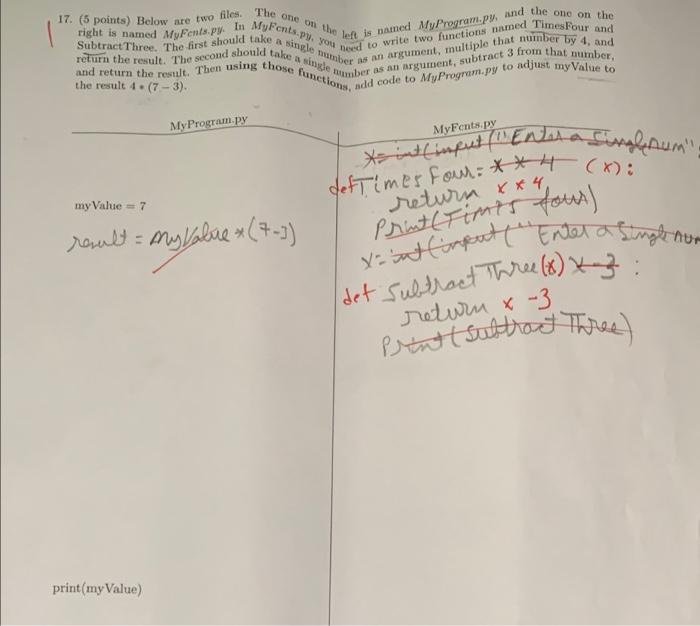 17. (5 points) Below are two files. The one on the left is named MyProgram.py, and the one on the
right is named MyFcnts.py. In MyFcnts.py, you need to write two functions named TimesFour and
SubtractThree. The first should take a single number as an argument, multiple that number by 4, and
return the result. The second should take a single number as an argument, subtract 3 from that number,
and return the result. Then using those functions, add code to MyProgram.py to adjust myValue to
the result 4 * (7 − 3).
MyProgram.py
myValue = 7
result = myValue * (7-3)
print(myValue)
MyFcnts.py
x = int(input("Enter a single num"
def Times Four = x * 4 (x):
return x * 4
Print(Times four)
x = int(input("Enter a Single num
def Subtract Three (x) x-3 :
return x -3
Print(Subtract Three)